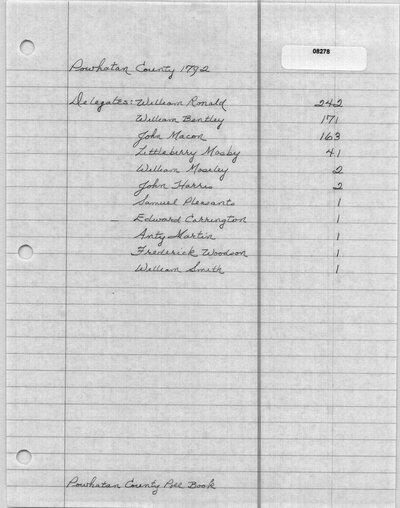 08278
Powhatan County 1792
Delegates: William Ronald 242
William Bentley 171
John Macon 163
Littleberry Mosby 41
William Moseley 2
John Harris 2
Samuel Pleasants 1
– Edward Carrington 1
Anty Martin 1
Frederick Woodson 1
William Smith 1
Powhatan County Poll Book